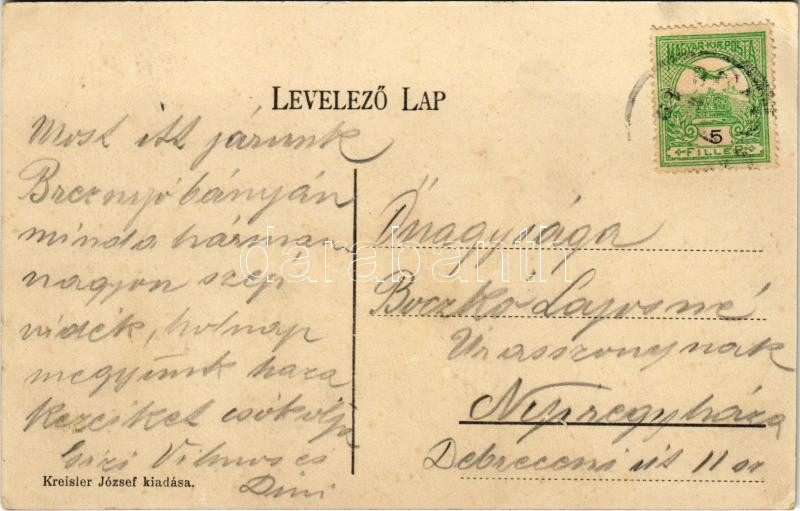 LEVELEZŐ LAP
MAGYAR KIR. POSTA
5
FILLÉR
Most itt járunk
Breznyóbányán
mind a hárman
nagyon szép
vidék, holnap
megyünk haza
kezeiket csókolja
Gizi Vilmos és
Dini
Őnagysága
Boczkó Lajosné
Úrasszonynak
Nyiregyháza
Debreceni út 11 sz
Kreisler József kiadása.
darabanth